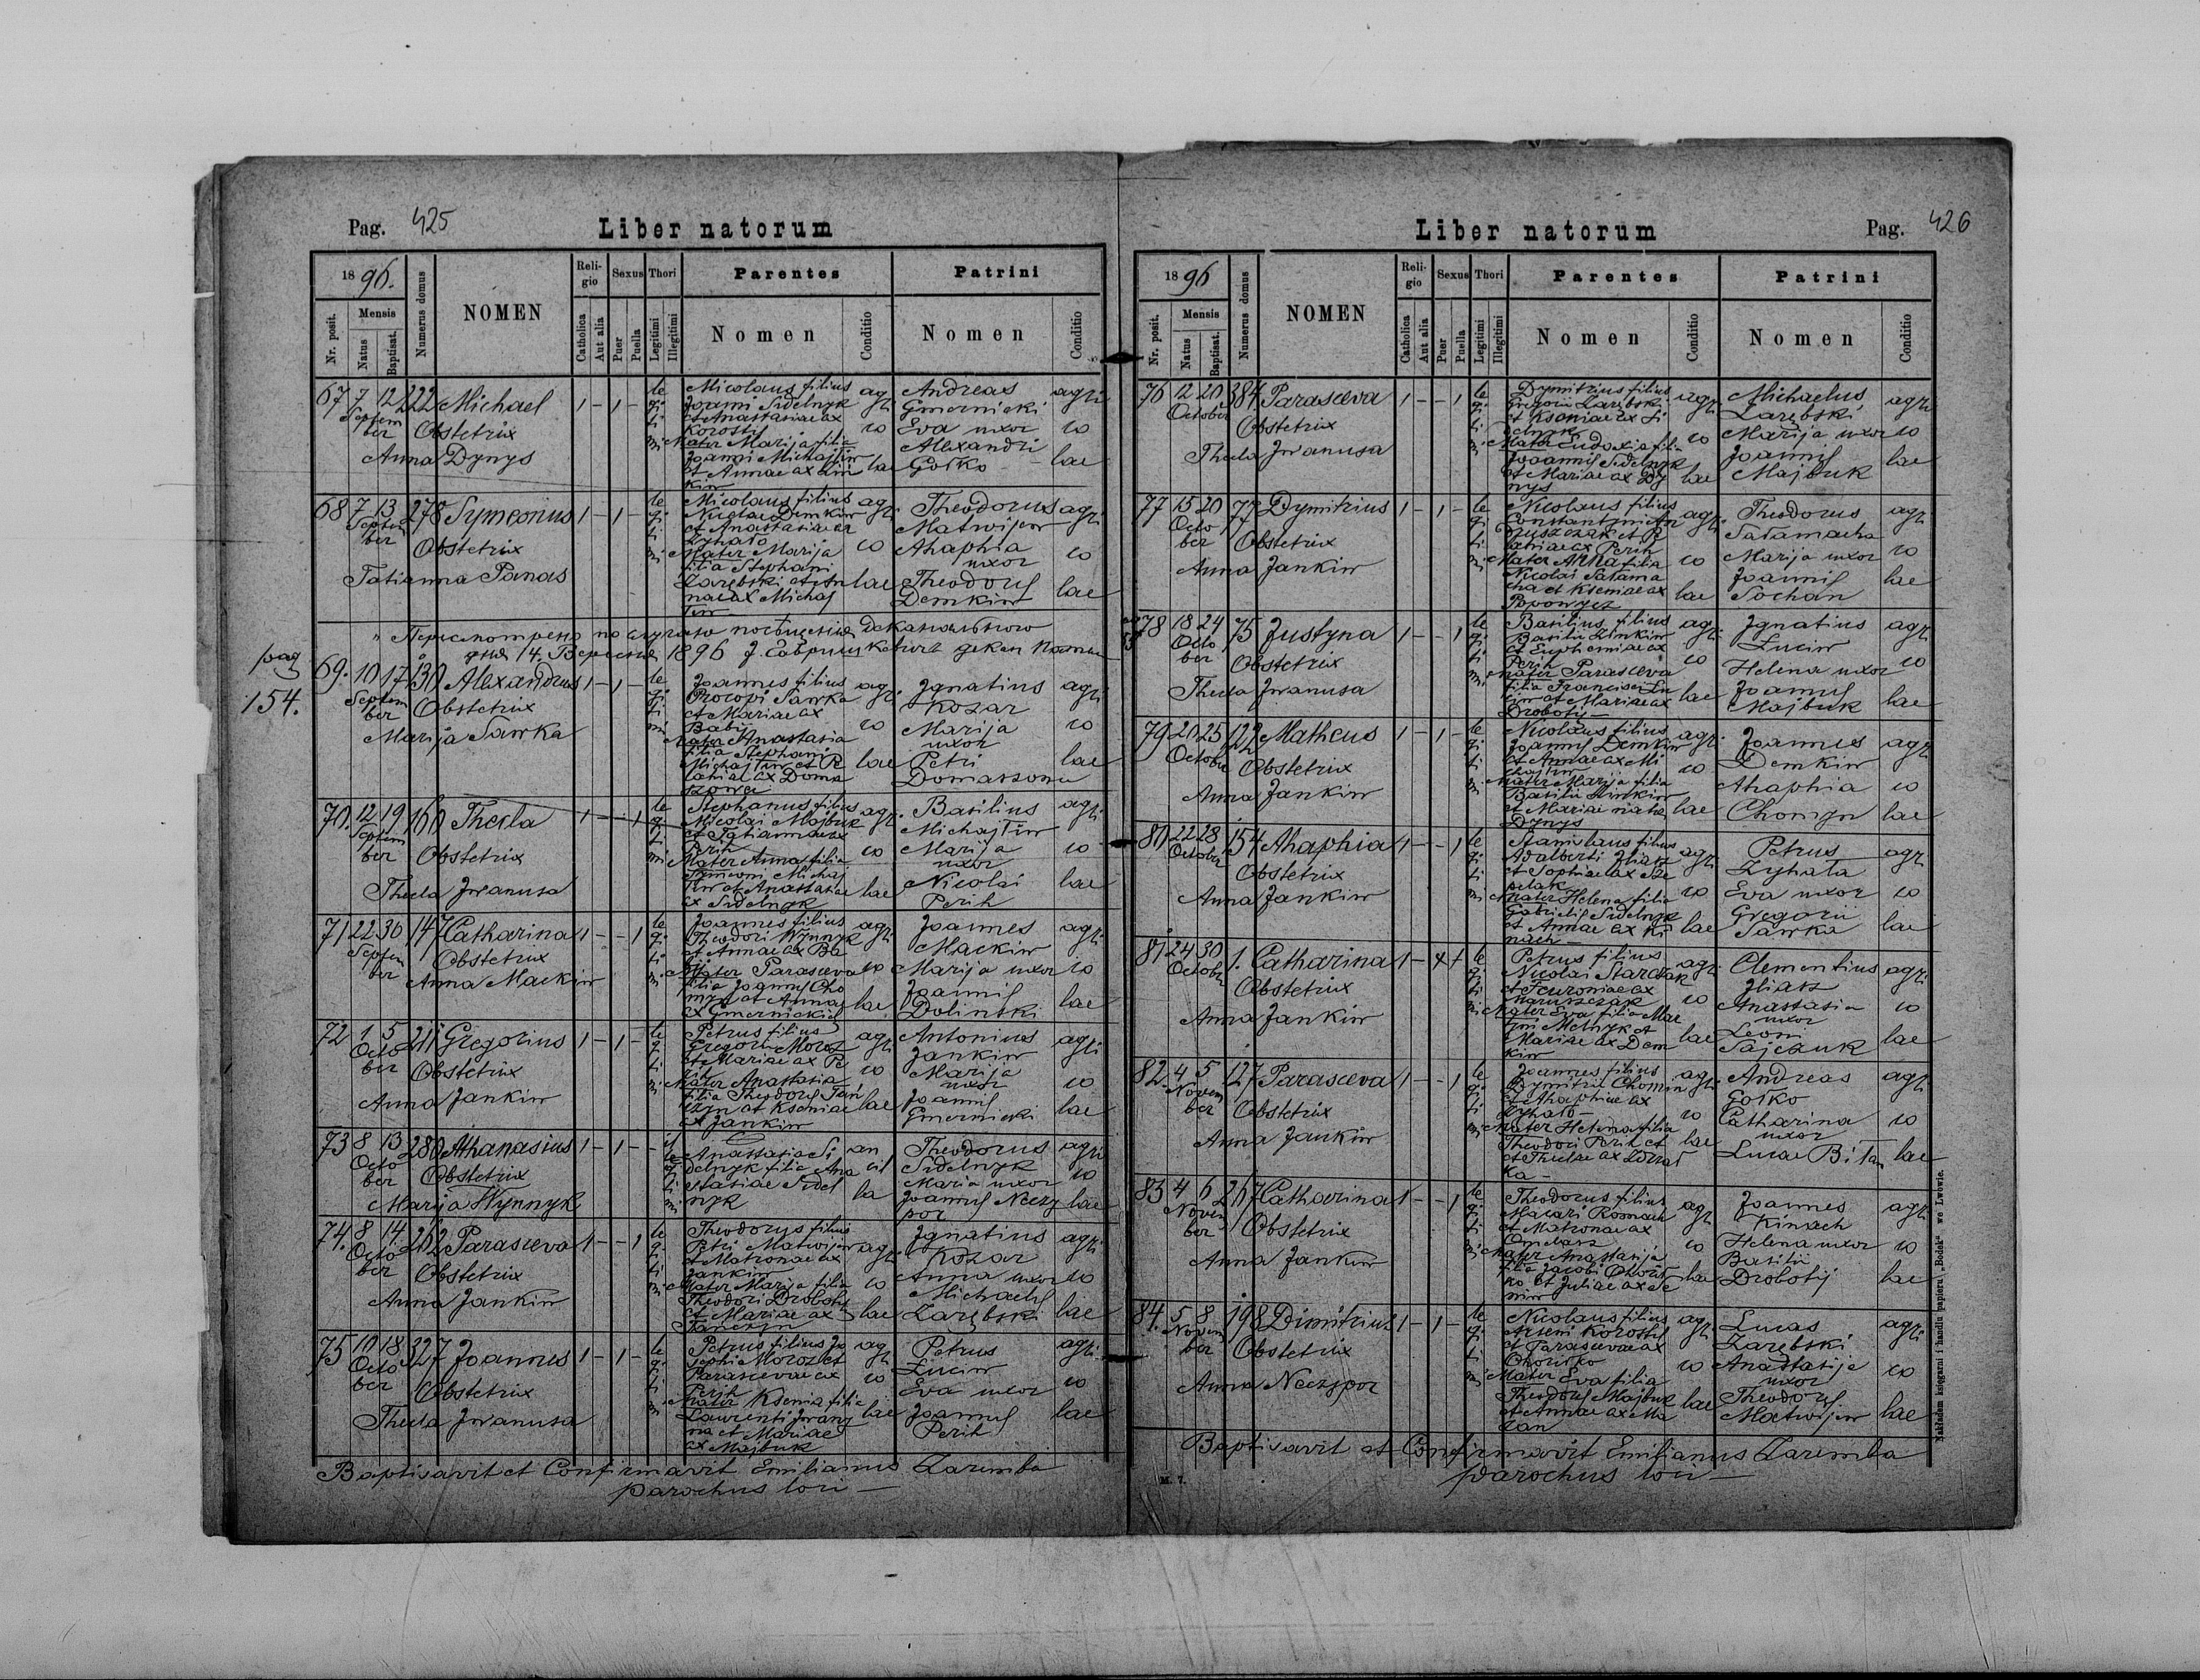 Pag. 425
Liber natorum
1896.
Numerus domus
NOMEN
Religio
Sexus
Thori
Parentes
Patrini
Nr. posit.
Mensis
Natus
Baptisat.
Catholica
Aut alia
Puer
Puella
Legitimi
Illegitimi
Nomen
Conditio
Nomen
Conditio
67 7 12 222 Michael 1 - 1 -
September
Obstetrix
Anna Dynys
legitimi
Nicolaus filius
Joanni Sidelnyk
et Anastasiae ex
Korostil
Mater Marija filia
Joanni Michajliw
et Annae ex Lin
kiw
agricolae
Andreas
Gmernicki
Eva uxor
Alexandri
Gosko
agricolae
68 7 13 278 Symeonius 1 - 1 -
September
Obstetrix
Tatianna Panas
legitimi
Nicolaus filius
Nicolae Demkiw
et Anastasiae ex
Zyhalo
Mater Marija
filia Stephani
Zarębski et An
nae ex Michaj
liw
agricolae
Theodorus
Matwijow
Ahaphia
uxor
Theodory
Demkiw
agricolae
pag
154.
14. 1896
69. 10 17 130 Alexandrus 1 - 1 -
September
Obstetrix
Marija Sawka
legitimi
Joannes filius
Procopi Sawka
et Mariae ex
Babij
Mater Anastasia
filia Stephani
Michajliw et P
elahiae ex Doma
szowa
agricolae
Ignatius
Kozar
Marija
uxor
Petri
Domaszowu
agricolae
70. 12 19 160 Thecla 1 - - 1
September
Obstetrix
Thecla Jwanusa
legitimi
Stephanus filius
Nicolai Majbuk
et Tatiannae ex
Perih
Mater Anna filia
Symeoni Michaj
liw et Anastasiae
ex Sidelnyk
agricolae
Basilius
Michajliw
Marija
uxor
Nicolai
Perih
agricolae
71 22 30 147 Catharina 1 - - 1
September
Obstetrix
Anna Mackiw
legitimi
Joannes filius
Theodori Wynnyk
et Annae ex Ba
bij
Mater Parasceva
filia Joanny Cho
myn et Annae
ex Gmernickie
agricolae
Joannes
Mackiw
Marija uxor
Joannis
Dolinski
agricolae
72 1 5 211 Gregorius 1 - 1 -
October
Obstetrix
Anna Jankiw
legitimi
Petrus filius
Gregorii Moroz
et Mariae ex Pe
rih
Mater Anastasia
filia Theodory Tan
czyn et Kseniae
ex Jankiw
agricolae
Antonius
Jankiw
Marija
uxor
Joannis
Gmernicki
agricolae
73 8 13 280 Athanasius 1 - 1 -
October
Obstetrix
Marija Wynnyk
illegitimi
Anastasia Si
delnyk filia Ana
stasiae Sidel
nyk
ancilla
Theodorus
Sidelnyk
Maria uxor
Joannis Neczy
por
agricolae
74. 8 14 262 Parasceva 1 - - 1
October
Obstetrix
Anna Jankiw
legitimi
Theodorys filius
Petri Matwijow
et Matronae ex
Jankiw
Mater Marija filia
Theodori Drobotij
et Mariae ex
Tanczyn
agricolae
Ignatius
Kozar
Anna uxor
Michaely
Zarębski
agricolae
75 10 18 327 Joannes 1 - 1 -
October
Obstetrix
Thecla Jwanusa
legitimi
Petrus filius Jo
sephi Moroz et
Parascevae ex
Perih
Mater Ksenia filia
Laurenti Jwany
na et Mariae
ex Majbuk
agricolae
Petrus
Luciw
Eva uxor
Joannis
Perih
agricolae
Baptisavit et Confirmavit Emilianus Zaremba
parochus loci —
Liber natorum
Pag. 426
1896
Numerus domus
NOMEN
Religio
Sexus
Thori
Parentes
Patrini
Nr. posit.
Mensis
Natus
Baptisat.
Catholica
Aut alia
Puer
Puella
Legitimi
Illegitimi
Nomen
Conditio
Nomen
Conditio
76 12 20 384 Parasceva 1 - - 1
October
Obstetrix
Thecla Jwanusa
legitimi
Dymitrius filius
Gregorii Zarębski
et Kseniae ex Si
delnyk
Mater Eudoxia filia
Joannis Sidelnyk
et Mariae ex Dy
nys
agricolae
Michaelus
Zarębski
Marija uxor
Joannis
Majbuk
agricolae
77 15 20 77 Dymitrius 1 - 1 -
October
Obstetrix
Anna Jankiw
legitimi
Nicolaus filius
Constantyni An
druszczak et P
elahiae ex Perih
Mater Anna filia
Nicolai Salama
cha et Kseniae ex
Popowycz
agricolae
Theodorus
Salamacha
Marija uxor
Joannis
Sochan
agricolae
78 18 24 75 Justyna 1 - - 1
October
Obstetrix
Thecla Jwanusa
legitimi
Basilius filius
Basilii Linkiw
et Euphemiae ex
Perih
Mater Parasceva
filia Francisci Lu
ciw et Mariae ex
Drobotij —
agricolae
Ignatius
Luciw
Helena uxor
Joannis
Majbuk
agricolae
79 20 25 122 Matheus 1 - 1 -
October
Obstetrix
Anna Jankiw
legitimi
Nicolaus filius
Joannis Demkiw
et Annae ex Mi
chajliw
Mater Marija filia
Basilii Linkiw
et Mariae natae
Dynys
agricolae
Joannes
Demkiw
Ahaphia
Chomyn
agricolae
80 22 28 154 Ahaphia 1 - - 1
October
Obstetrix
Anna Jankiw
legitimi
Stanislaus filius
Adalberti Iliasz
et Sophiae ex Sze
pelak
Mater Helena filia
Gabrielis Sidelnyk
et Annae ex Ki
nach —
agricolae
Petrus
Zyhala
Eva uxor
Gregorii
Sawka
agricolae
81 24 30 1. Catharina 1 -
October
Obstetrix
Anna Jankiw
legitimi
Petrus filius
Nicolai Starczak
et Feuroniae ex
Maruszczak
Mater Eva filia Mar
tini Melnyk et
Mariae ex Dem
kiw
agricolae
Clementius
Iliasz
Anastasia
uxor
Leoni
Sajczuk
agricolae
82. 4 5 127 Parasceva 1 - - 1
November
Obstetrix
Anna Jankiw
legitimi
Joannes filius
Dymitrii Chomin
et Ahaphiae ex
Zyhalo —
Mater Helena filia
Theodori Perih et
et Theclae ex
ka —
agricolae
Andreas
Gosko
Catharina
uxor
Lucae Bilan
agricolae
83 4 6 267 Catharina 1 - - 1
November
Obstetrix
Anna Jankiw
legitimi
Theodorus filius
Macari Romach
et Matronae ex
Omelasz
Mater Anastasija
filia Jacobi Choris
ko et Juliae ex Se
niw
agricolae
Joannes
Kinach
Helena uxor
Basilii
Drobotij
agricolae
84. 5 8 198 Dimitrius 1 - 1 -
November
Obstetrix
Anna Neczypor
legitimi
Nicolaus filius
Arseni Korostil
et Parascevae ex
Chorisko
Mater Eva filia
Theodory Majbuk
et Annae ex Ma
zan
agricolae
Lucas
Zarębski
Anastasija
uxor
Theodory
Matwijow
agricolae
Baptisavit et Confirmavit Emilianus Zaremba
parochus loci —
M. 7.
Nakładem księgarni i handlu papieru „Bodek" we Lwowie.